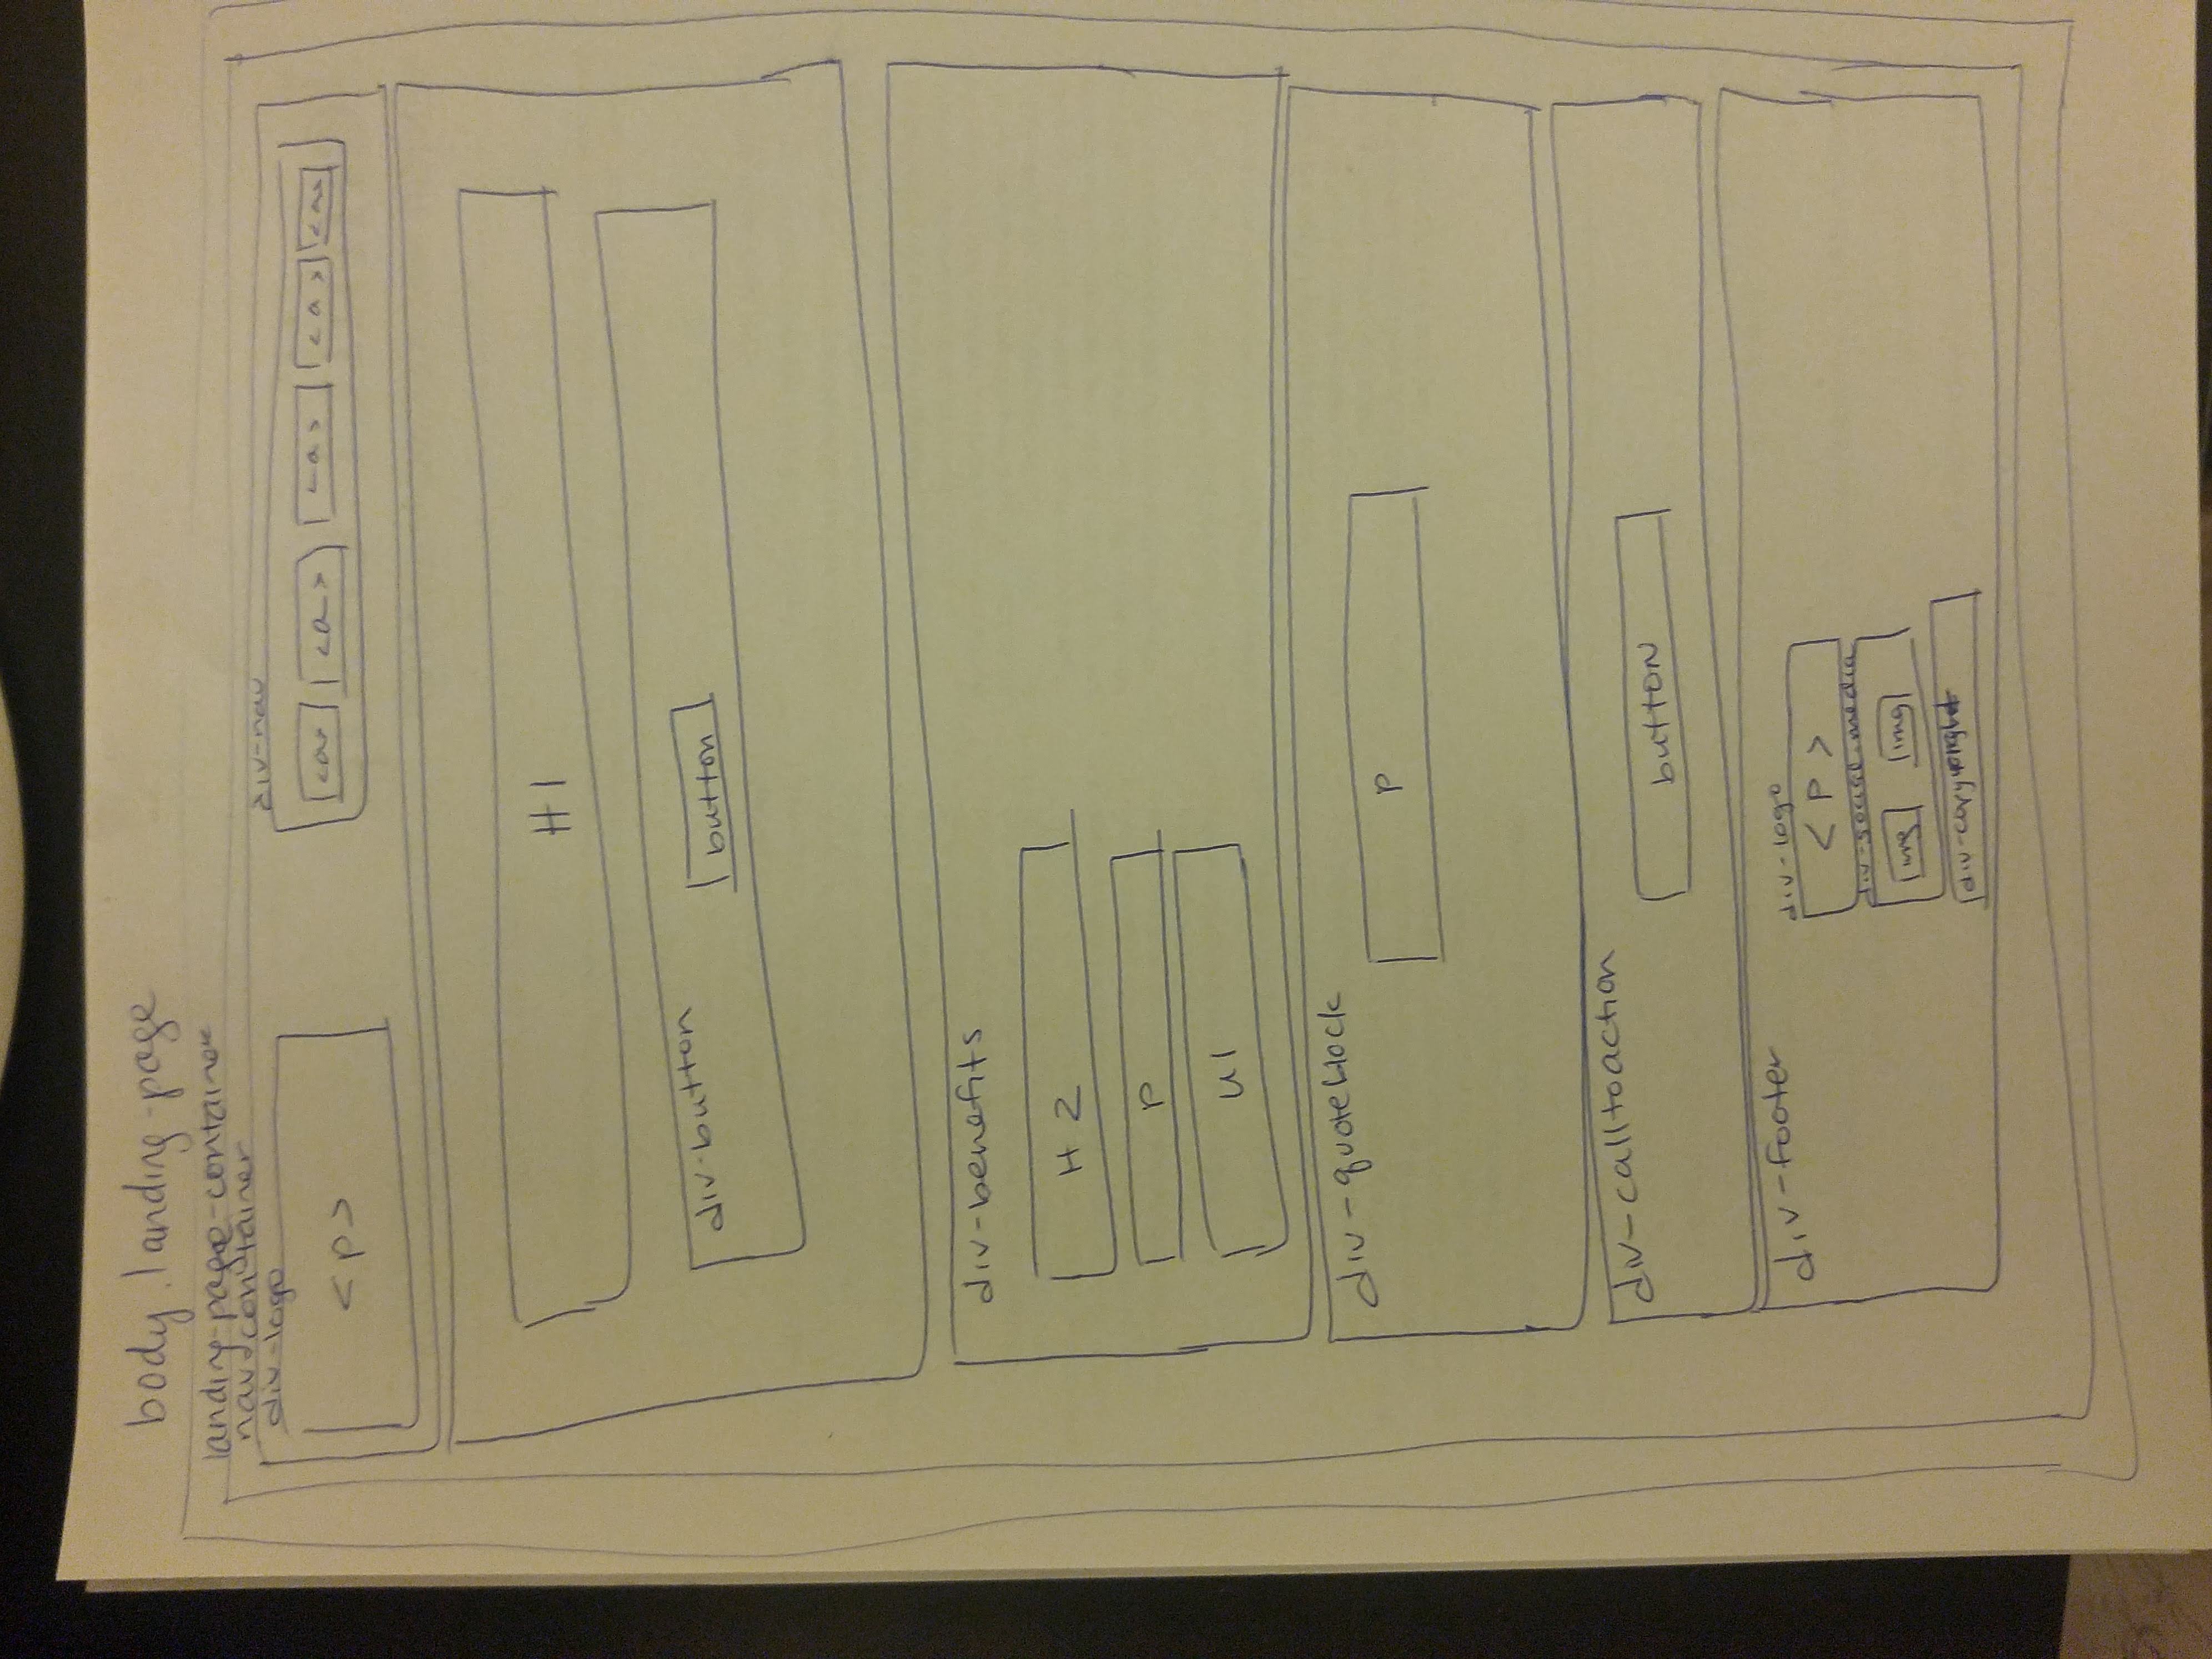 body.landing-page
landing-page-container
nav-container
div-logo
div-nav
<p>
<a> <a> <a> <a> <a>
H1
div-button
button
div-benefits
H2
p
ul
div-quoteblock
p
div-calltoaction
button
div-footer
div-logo
<P>
div-social-media
img img
div-copyright